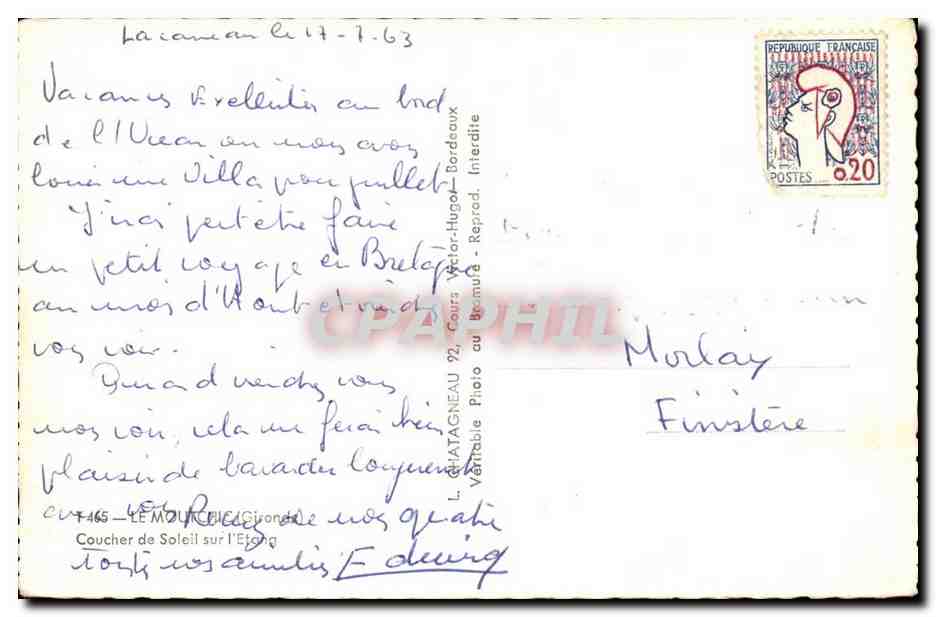 Lacanau le 17-7.63
Vacances Excellentes au bord
de l'Ocean ou nous avons
loué une Villa pour juillet
J'irai peut etre faire
un petit voyage en Bretagne
au mois d'Aout et viendrai
vous voir.
Quand viendrez vous
nous voir, cela me ferai bien
plaisir de bavarder longuement
avec vous de nos quatre
toutes nos amitiés
T 465 — LE MOUTCHIC (Gironde)
Coucher de Soleil sur l'Etang
L. CHATAGNEAU 92, Cours Victor-Hugo — Bordeaux
Véritable Photo au Bromure - Reprod. Interdite
CPAPHIL
REPUBLIQUE FRANÇAISE
POSTES 0.20
Morlaix
Finistère